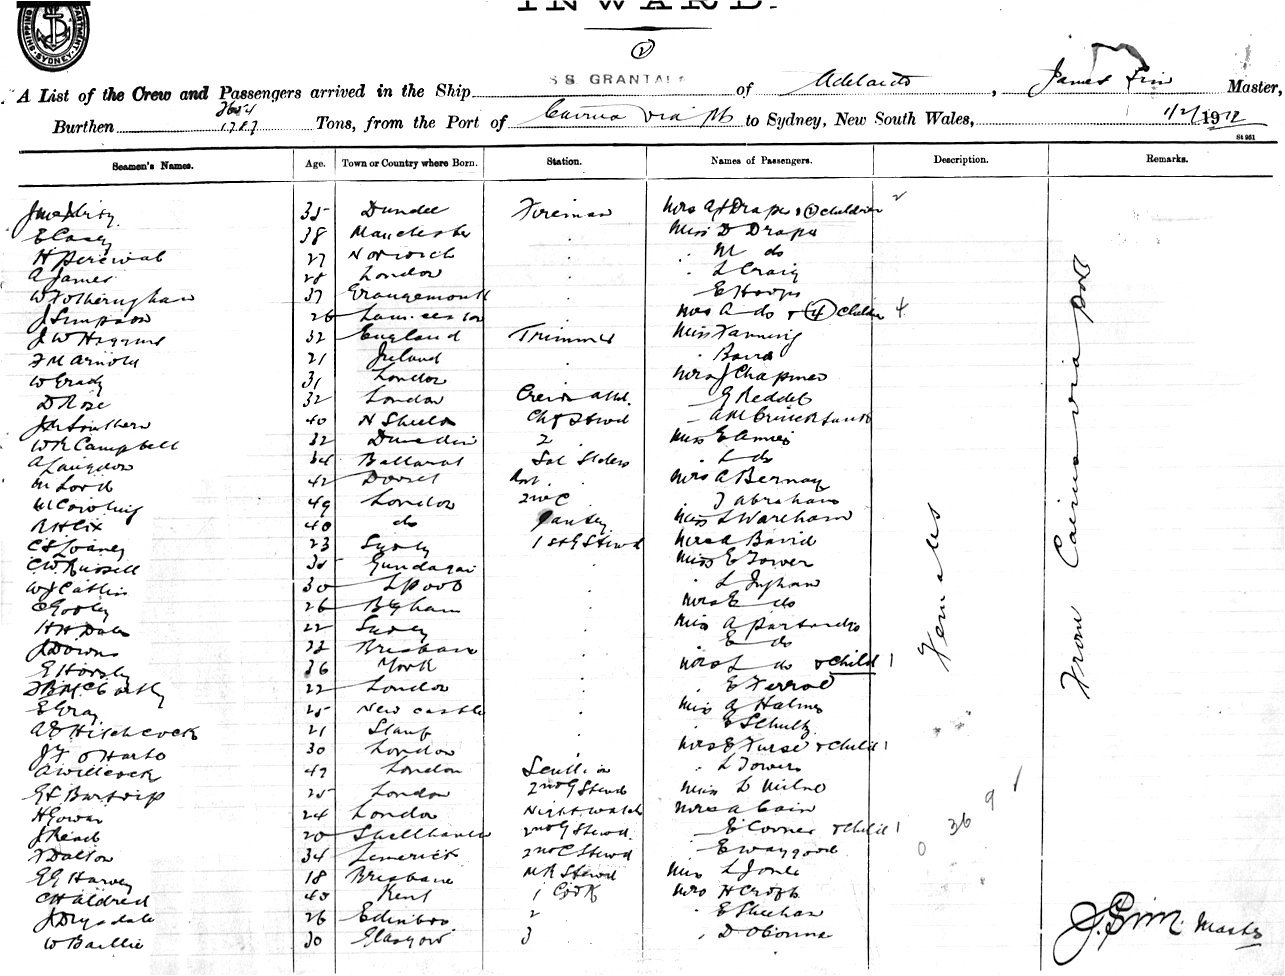 INWARD.
SHIPPING DEPARTMENT SYDNEY
(2)
A List of the Crew and Passengers arrived in the Ship S.S. GRANTALA of Adelaide, James Sim Master,
Burthen 3654 1787 Tons, from the Port of Cairns via Pts to Sydney, New South Wales, 11/2/1912
St 951
Seamen's Names. Age. Town or Country where Born. Station. Names of Passengers. Description. Remarks.
35 Dundee Fireman Mrs A J Draper & (2) children 2
E Casey 38 Manchester Miss D Draper
H Percival 27 Norwich M do
A James 28 London L Craig
W Fotheringham 37 Grangemouth E Hoops
J Simpson 26 Mrs A do & (4) children 4
J W Higgins 32 England Trimmer Miss Fanning
F M Arnold 21 Ireland Baird
W Grady 31 London Mrs J Chapman
D Rose 32 London G Reddel
J M Southern 40 N Shields Chf Stewd
W R Campbell 32 Dunedin 2 Miss E Annies
A Langdon 34 Ballarat L do
M Lord 42 Dorset Mrs A Bernay
49 London 2nd C J Abraham
R H Cix 40 do Pantry Miss L Wareham
C S Loaney 23 Sydney 1st G Stewd Mrs A David
C W Russell 35 Gundagai Miss E Tower
W J Catlin 30 L'pool L Ingham
E Gooley 26 B'gham Mrs E do
H H Dale 22 Sydney Miss A
J Downs 32 Brisbane E do
E Horsley 36 York Mrs L do & Child 1
22 London E Ferrol
E Gray 25 New castle Miss A Holmes
A E Hitchcock 21 E Schultz
J F O'Harto 30 London Mrs E Furse & Child 1
A Willcock 49 London L Towers
25 London 2nd G Stewd Miss L Milne
H Gower 24 London Night watch Mrs A Cain
J Read 20 Shellharbour 2nd G Stewd E Corner & Child 1
F Dalton 34 Limerick 2nd C Stewd E Waygood
E G Harvey 18 Brisbane M R Stewd Miss L Jones
C H Aldred 40 Kent 1 Cook Mrs H Croft
J Drysdale 26 Edinboro 2 E Sheehan
W Baillie 30 Glasgow 3 D O'Connor
Females
0 36 9 1
From Cairns via ports
J Sim. Master